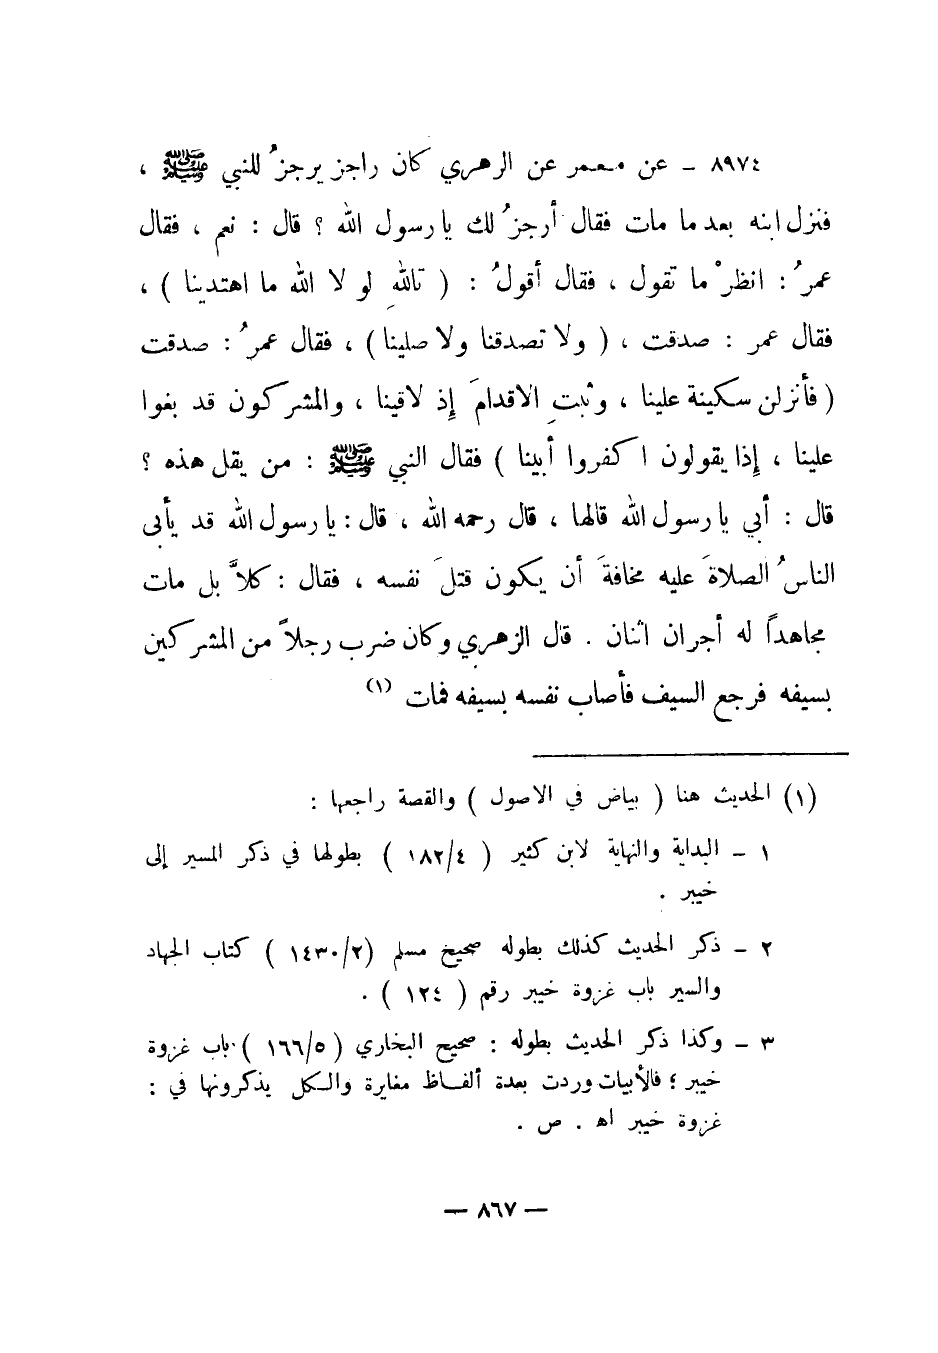 ٨٩٧٤ ـ عن معمر عن الزهري كان راجز يرجزُ للنبي ﷺ ،
فنزل ابنه بعد ما مات فقال أرجزُ لك يا رسول الله ؟ قال : نعم ، فقال
عمرُ : انظرْ ما تقول ، فقال أقولُ : ( تاللهِ لو لا الله ما اهتدينا ) ،
فقال عمر : صدقت ، ( ولا تصدقنا ولا صلينا ) ، فقال عمرُ : صدقت
( فأنزلن سكينة علينا ، وثبتِ الاقدامَ إِذ لاقينا ، والمشركون قد بغوا
علينا ، إِذا يقولون اكفروا أبينا ) فقال النبي ﷺ : من يقل هذه ؟
قال : أبي يا رسول الله قالها ، قال رحمه الله ، قال : يا رسول الله قد يأبى
الناسُ الصلاةَ عليه مخافةَ أن يكون قتلَ نفسه ، فقال : كلاَّ بل مات
مجاهداً له أجران اثنان . قال الزهري وكان ضرب رجلاً من المشركين
بسيفه فرجع السيف فأصاب نفسه بسيفه فمات (١)
(١) الحديث هنا ( بياض في الاصول ) والقصة راجعها :
١ ـ البداية والنهاية لابن كثير ( ١٨٢/٤ ) بطولها في ذكر المسير إلى
خيبر .
٢ ـ ذكر الحديث كذلك بطوله صحيح مسلم (١٤٣٠/٢ ) كتاب الجهاد
والسير باب غزوة خيبر رقم ( ١٢٤ ) .
٣ ـ وكذا ذكر الحديث بطوله : صحيح البخاري ( ١٦٦/٥ ) باب غزوة
خيبر ؛ فالأبيات وردت بعدة ألفاظ مغايرة والكل يذكرونها في :
غزوة خيبر اه . ص .
— ٨٦٧ —